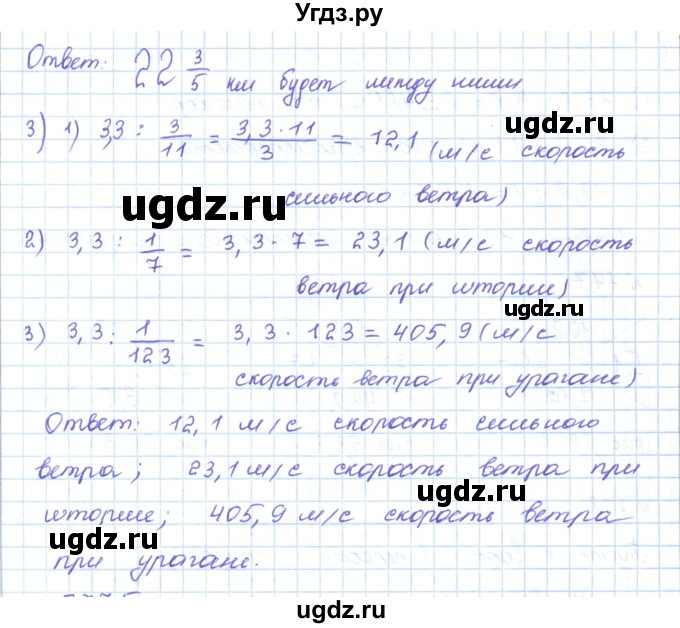 Угдз.ру
Ответ: 22 3/5 км будет между ними
3) 1) 3,3 : 3/11 = 3,3 · 11/3 = 12,1 (м/с скорость
сильного ветра)
2) 3,3 : 1/7 = 3,3 · 7 = 23,1 (м/с скорость
ветра при шторме)
3) 3,3 : 1/123 = 3,3 · 123 = 405,9 (м/с
скорость ветра при урагане)
Ответ: 12,1 м/с скорость сильного
ветра; 23,1 м/с скорость ветра при
шторме; 405,9 м/с скорость ветра
при урагане.
ugdz.ru
ugdz.ru
ugdz.ru
ugdz.ru
ugdz.ru
ugdz.ru